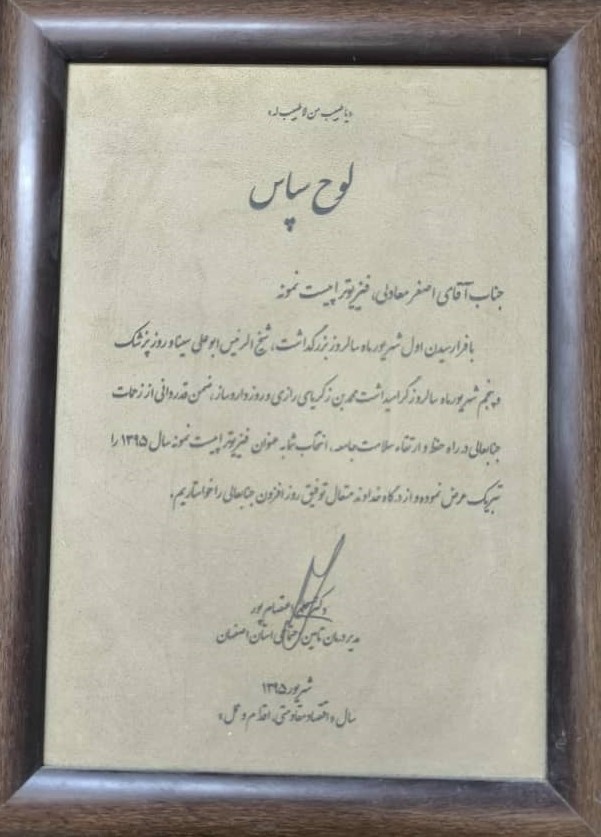 «یا طبیب من لا طبیب له»
لوح سپاس
جناب آقای اصغر معادلی، فیزیوتراپیست نمونه
با فرا رسیدن اول شهریور ماه سالروز بزرگداشت، شیخ الرئیس ابوعلی سینا و روز پزشک
و پنجم شهریور ماه سالروز گرامیداشت محمد بن زکریای رازی و روز داروساز، ضمن قدردانی از زحمات
جنابعالی در راه حفظ و ارتقاء سلامت جامعه، انتخاب شما به عنوان فیزیوتراپیست نمونه سال ۱۳۹۵ را
تبریک عرض نموده و از درگاه خداوند متعال توفیق روز افزون جنابعالی را خواستاریم.
دکتر اعتصام پور
مدیر درمان تامین اجتماعی استان اصفهان
شهریور ۱۳۹۵
سال «اقتصاد مقاومتی، اقدام و عمل»